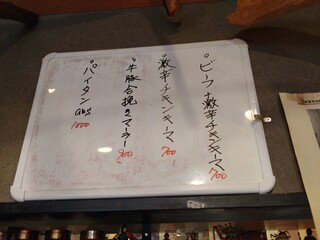 ビーフ+激辛チキンキーマ 900
激辛チキンキーマ 700
牛豚合挽きマーラー 900
パイタン 1000